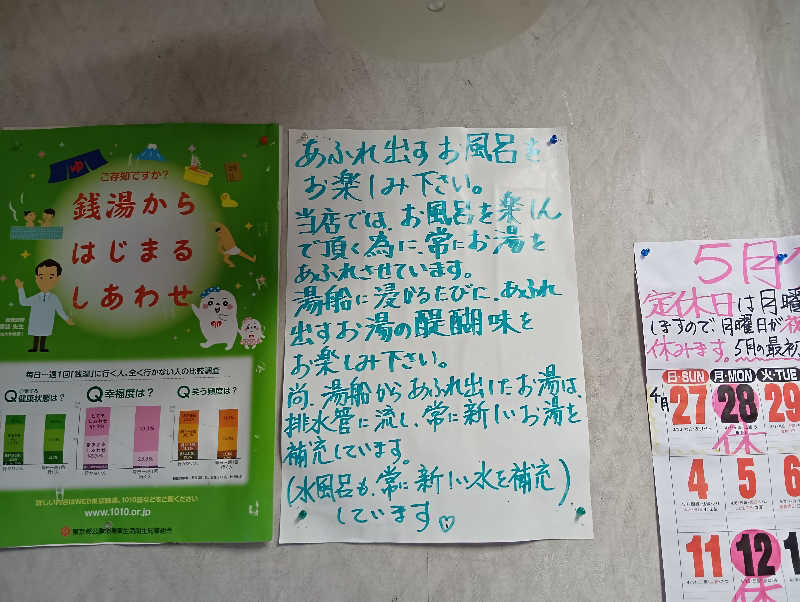 ご存知ですか?
銭湯から
はじまる
しあわせ
毎日〜週1回「銭湯」に行く人、全く行かない人の比較調査
健康状態は?
幸福度は?
笑う頻度は?
詳しい内容はWEB東京銭湯、1010誌などをご覧ください
www.1010.or.jp
あふれ出すお風呂を
お楽しみ下さい。
当店では、お風呂を楽しん
で頂く為に、常にお湯を
あふれさせています。
湯船に浸かるたびに、あふれ
出すお湯の醍醐味を
お楽しみ下さい。
尚、湯船からあふれ出したお湯は、
排水管に流し、常に新しいお湯を
補充しています。
(水風呂も、常に新しい水を補充)
しています♡
5月
定休日は月曜
しますので月曜日が祝
休みます。5月の最初
日・SUN 月・MON 火・TUE
4月 27 28 29
休
4 5 6
11 12 1
休